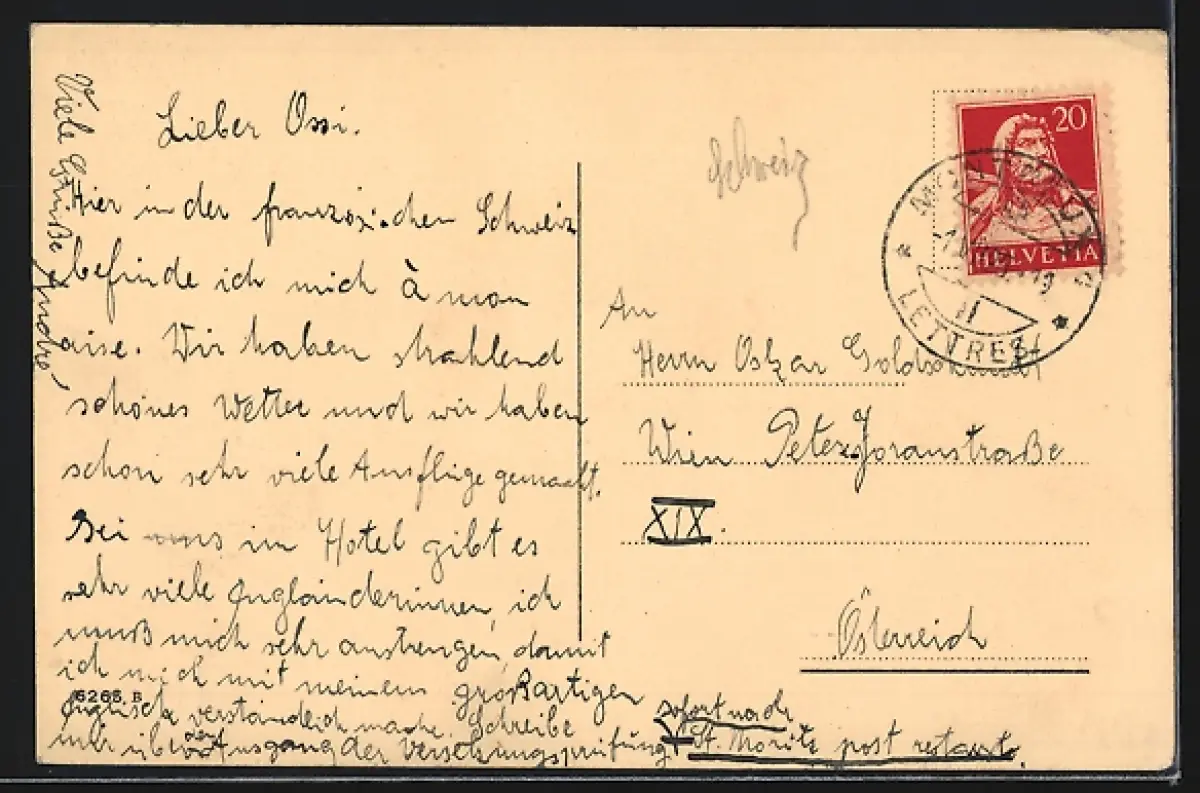 Lieber Ossi.
Hier in der französischen Schweiz
befinde ich mich à mon
aise. Wir haben strahlend
schönes Wetter und wir haben
schon sehr viele Ausflüge gemacht.
Bei uns im Hotel gibt es
sehr viele Engländerinnen, ich
muß mich sehr anstrengen, damit
ich mich mit meinem großartigen
Englisch verständlich mache. Schreibe
mir über den Ausgang der Versetzungsprüfung
sofort nach
St. Moritz post restante.
Viele Grüße Andre
6265 B
Schweiz
20
HELVETIA
MONTREUX
LETTRES
An
Herrn Oskar Goldschmidt
Wien Peter
XIX.
Österreich